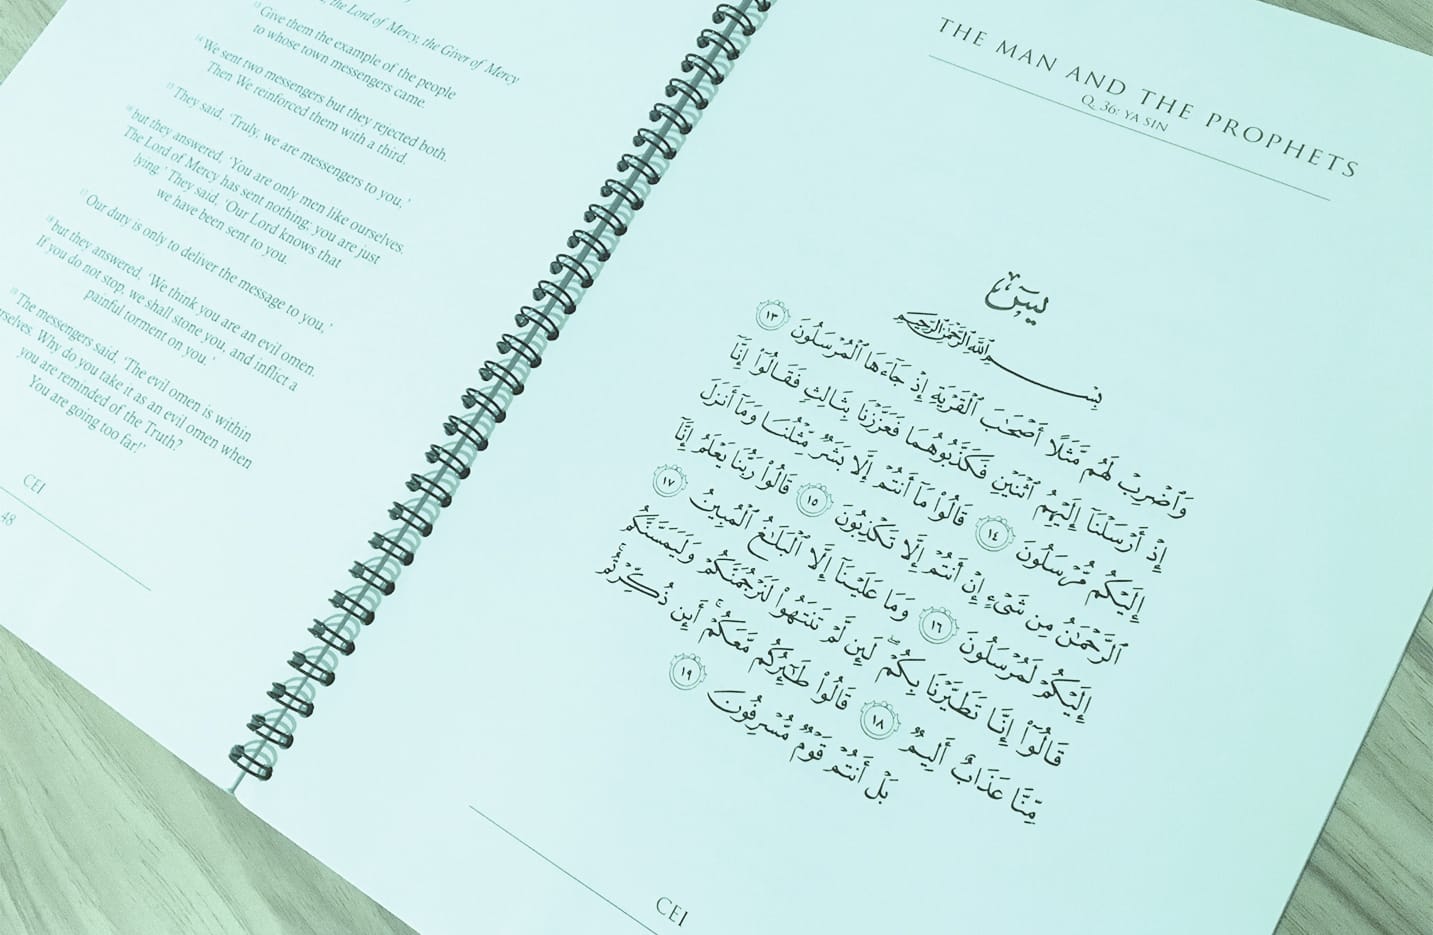 the Lord of Mercy, the Giver of Mercy
13 Give them the example of the people
to whose town messengers came.
14 We sent two messengers but they rejected both.
Then We reinforced them with a third.
15 They said, 'Truly, we are messengers to you,'
16 but they answered, 'You are only men like ourselves.
The Lord of Mercy has sent nothing; you are just
lying.' They said, 'Our Lord knows that
we have been sent to you.
17 Our duty is only to deliver the message to you,'
18 but they answered, 'We think you are an evil omen.
If you do not stop, we shall stone you, and inflict a
painful torment on you.'
19 The messengers said, 'The evil omen is within
Why do you take it as an evil omen when
you are reminded of the Truth?
You are going too far!'
CEI
48
THE MAN AND THE PROPHETS
Q. 36: YA SIN
يسٓ
بِسْمِ ٱللَّهِ ٱلرَّحْمَٰنِ ٱلرَّحِيمِ
وَٱضْرِبْ لَهُم مَّثَلًا أَصْحَٰبَ ٱلْقَرْيَةِ إِذْ جَآءَهَا ٱلْمُرْسَلُونَ ١٣
إِذْ أَرْسَلْنَآ إِلَيْهِمُ ٱثْنَيْنِ فَكَذَّبُوهُمَا فَعَزَّزْنَا بِثَالِثٍ فَقَالُوٓا۟ إِنَّآ
إِلَيْكُم مُّرْسَلُونَ ١٤ قَالُوا۟ مَآ أَنتُمْ إِلَّا بَشَرٌ مِّثْلُنَا وَمَآ أَنزَلَ
ٱلرَّحْمَٰنُ مِن شَىْءٍ إِنْ أَنتُمْ إِلَّا تَكْذِبُونَ ١٥ قَالُوا۟ رَبُّنَا يَعْلَمُ إِنَّآ
إِلَيْكُمْ لَمُرْسَلُونَ ١٦ وَمَا عَلَيْنَآ إِلَّا ٱلْبَلَٰغُ ٱلْمُبِينُ ١٧
قَالُوٓا۟ إِنَّا تَطَيَّرْنَا بِكُمْ ۖ لَئِن لَّمْ تَنتَهُوا۟ لَنَرْجُمَنَّكُمْ وَلَيَمَسَّنَّكُم
مِّنَّا عَذَابٌ أَلِيمٌ ١٨ قَالُوا۟ طَٰٓئِرُكُم مَّعَكُمْ ۚ أَئِن ذُكِّرْتُم ۚ
بَلْ أَنتُمْ قَوْمٌ مُّسْرِفُونَ ١٩
CEI